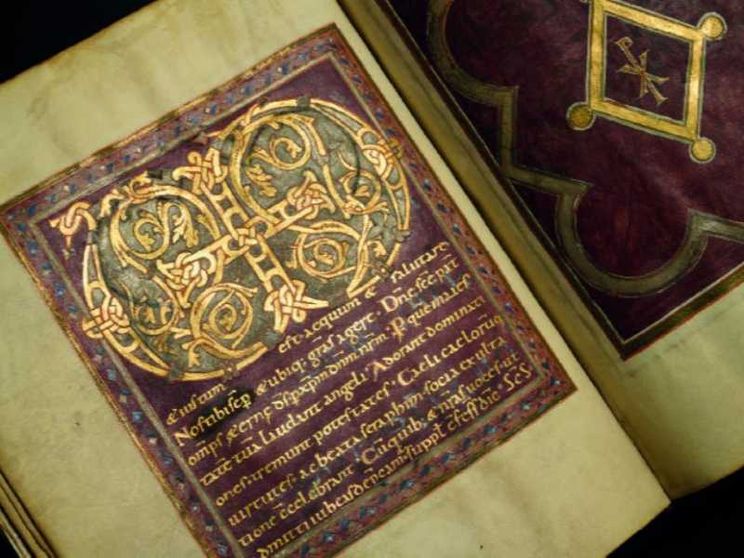 & iustum est aequum & salutare
Nos tibi sēp & ubiq: grās agere. Dn̄e sc̄e pat̄
omp̄s &ern̄e dš p xp̄m dn̄m nr̄m. P quem maies
tatē tuā laudant angeli. Adorant dominati
ones tremunt potestates. Caeli caelorūq;
uirtutes. ac beata seraphim socia exulta
tione c̄celebrant. Cū quib: & nr̄as uoces ut
admitti iubeas suppł c̄fessione. SCS